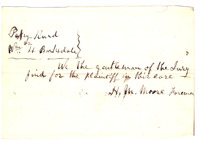 Wm H Barksdale
We the gentlemen of the Jury
find for the plaintiff in this case
H. M. Moore Foreman